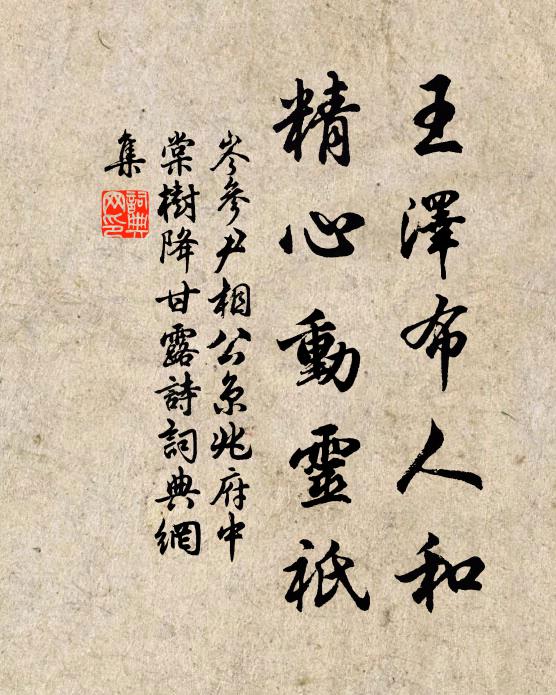 王澤布人和
精心動靈祇
岑參尹相公京兆府中
棠樹降甘露詩詞典網
集
詞典
网印